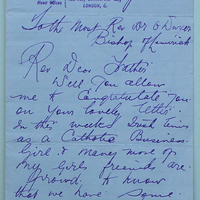 LONDON,
To the Most Rev Dr O'Dwyer
Bishop of Limerick
Rev Dear Father
Will you allow
me to Congratulate you
on your lovely letter
in this weeks Irish Times
as a Catholic Business
Girl & many more of
my Girls friends are
proud to know
that we have some